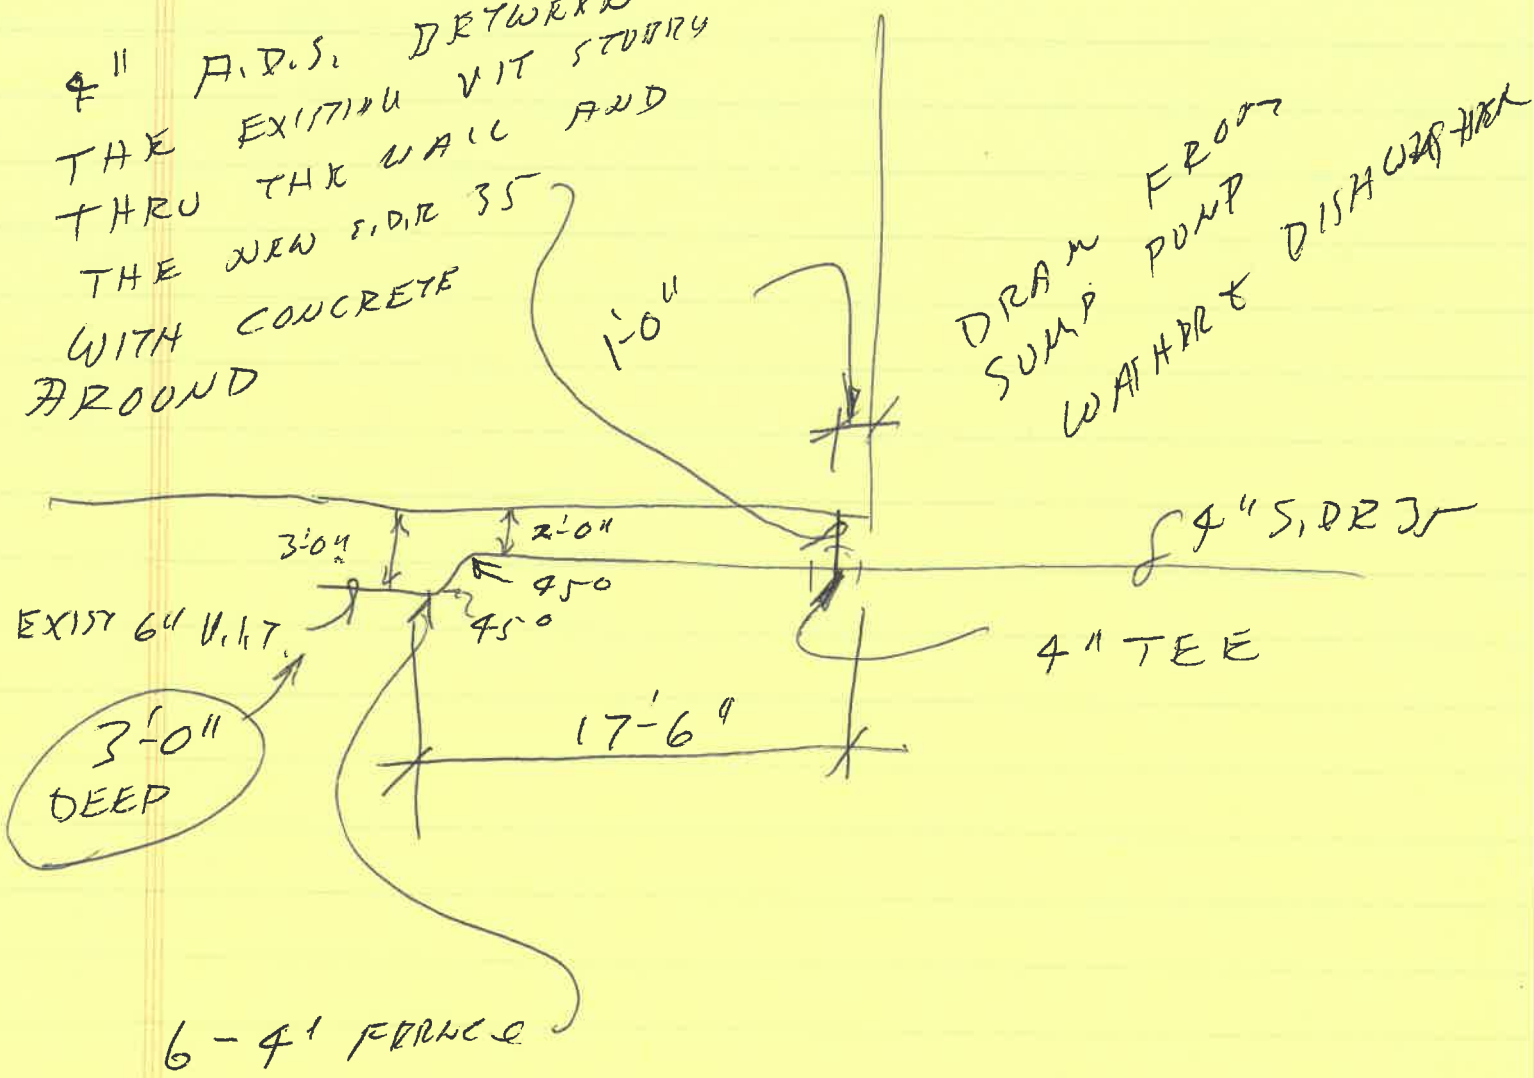 4" A.D.S. BETWEEN
THE EXISTING VIT STUBBY
THRU THE WALL AND
THE NEW S.D.R 35
WITH CONCRETE
AROUND
1'-0"
DRAIN FROM
SUMP PUMP
WATHER & DISHWASHER
3'-0"
2'-0"
45°
45°
4" S.DR 35
EXIST 6" V.I.T.
4" TEE
3'-0"
DEEP
17'-6"
6-4"